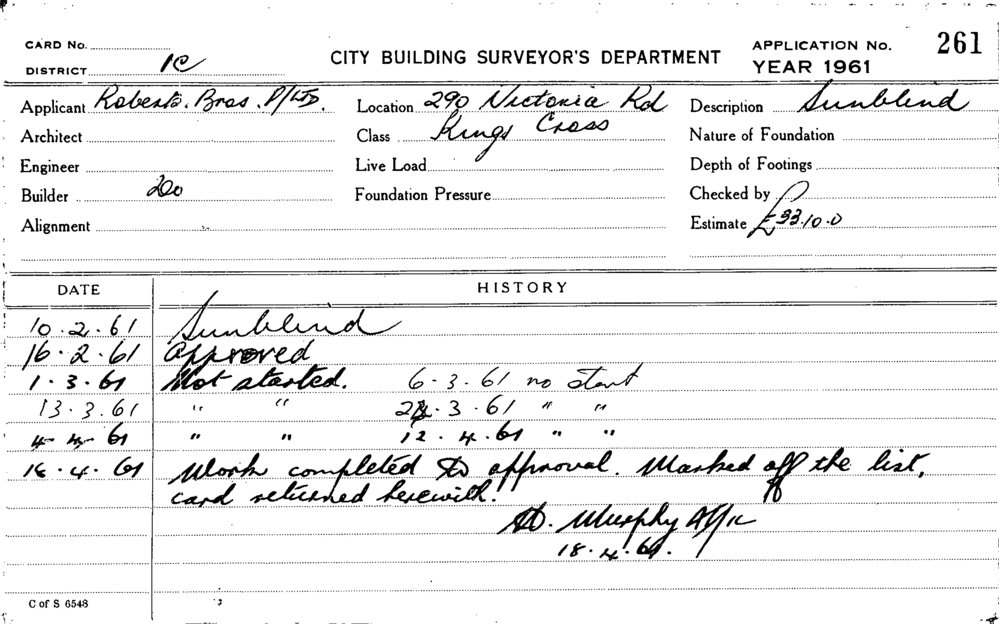 CARD No.
DISTRICT 1C
CITY BUILDING SURVEYOR'S DEPARTMENT
APPLICATION No. 261
YEAR 1961
Applicant Roberts. Bros. P/LTD.
Location 290 Victoria Rd
Description Sunblind
Architect
Class Kings Cross
Nature of Foundation
Engineer
Live Load
Depth of Footings
Builder Do
Foundation Pressure
Checked by
Alignment
Estimate £33.10.0
DATE HISTORY
10.2.61 Sunblind
16.2.61 Approved
1.3.61 Not started. 6.3.61 no start
13.3.61 " " 3.61 " "
4.61 " " 12.4.61 " "
4.61 Work completed to approval. Marked off the list,
card returned herewith.
Murphy
18.4.61.
C of S 6548